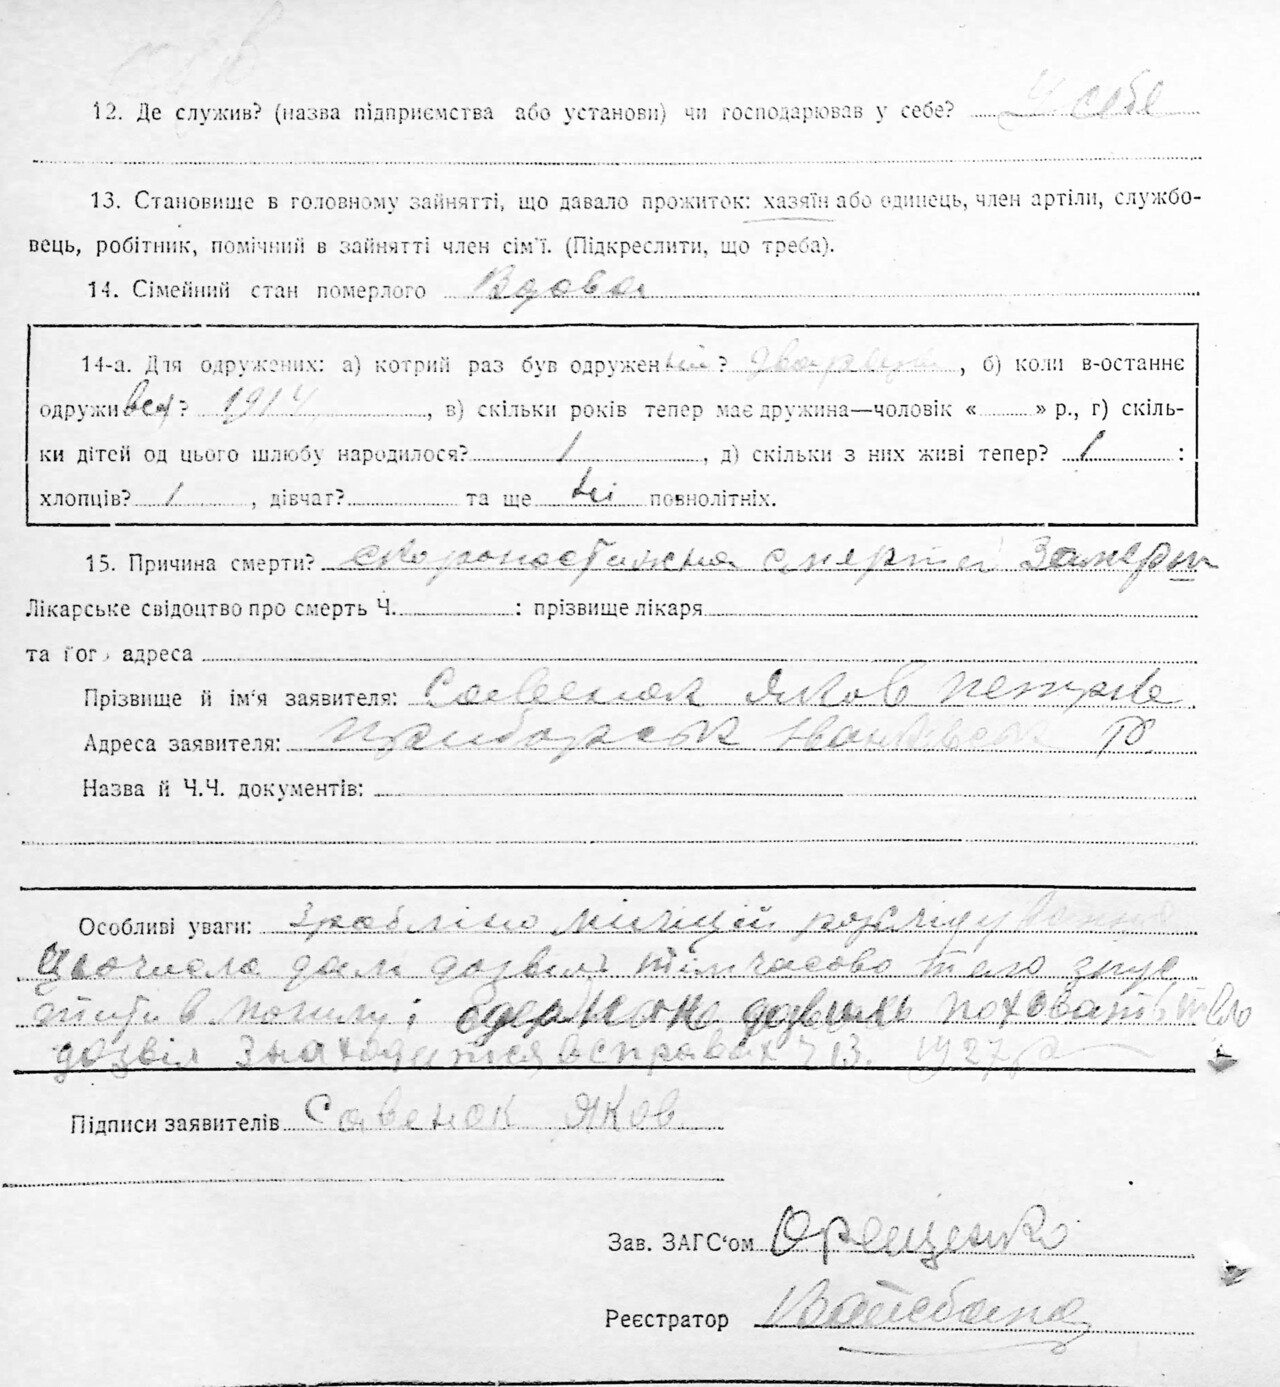 12. Де служив? (назва підприємства або установи) чи господарював у себе? У себе
13. Становище в головному зайнятті, що давало прожиток: хазяїн або одинець, член артіли, службо-
вець, робітник, помічний в зайнятті член сім'ї. (Підкреслити, що треба).
14. Сімейний стан померлого Вдова
14-а. Для одружених: а) котрий раз був одружен ? , б) коли в-останнє
одружився? 1914, в) скільки років тепер має дружина—чоловік « » р., г) скіль-
ки дітей од цього шлюбу народилося? 1, д) скільки з них живі тепер? 1:
хлопців? 1, дівчат? та ще повнолітніх.
15. Причина смерти? скоропостижна
Лікарське свідоцтво про смерть Ч. : прізвище лікаря
та його адреса
Прізвище й ім'я заявителя: Савенок Яков
Адреса заявителя: Р.
Назва й Ч.Ч. документів:
Особливі уваги: зроблено
дали дозвіл тимчасово тело
в могилу і поховать тело
дозвіл знаходится в справах Ч 13. 1927 р
Підписи заявителів Савенок Яков
Зав. ЗАГС'ом
Реєстратор